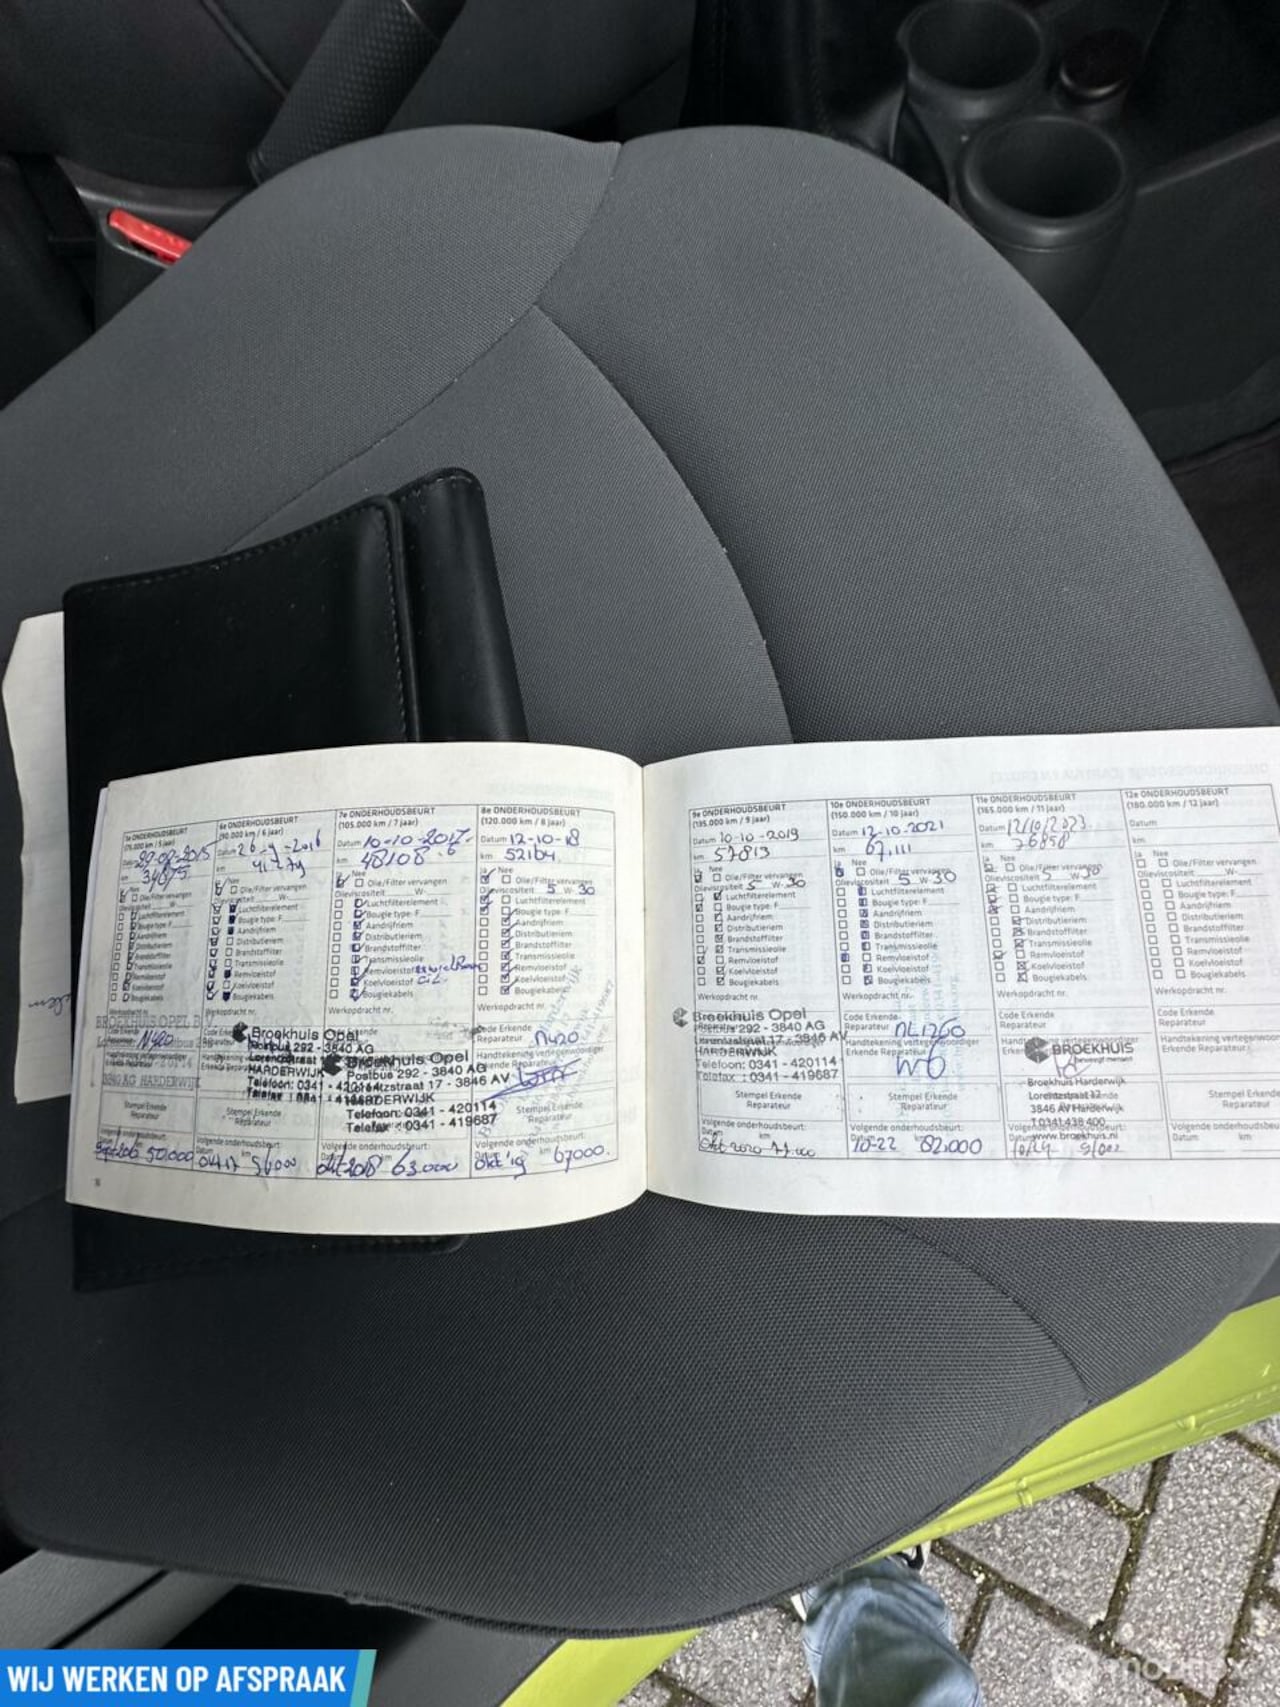 5e ONDERHOUDSBEURT
(75.000 km / 5 jaar)
km 34875
BROEKHUIS OPEL
N420
3840 AG HARDERWIJK
Stempel Erkende
Reparateur
Volgende onderhoudsbeurt:
Sept 2016 50.000
6e ONDERHOUDSBEURT
(90.000 km / 6 jaar)
Datum 26-9-2016
km 41779
Ja Nee
Olie/Filter vervangen
Luchtfilterelement
Bougie type: F
Aandrijfriem
Distributieriem
Brandstoffilter
Transmissieolie
Remvloeistof
Koelvloeistof
Bougiekabels
Werkopdracht nr.
Broekhuis Opel
Postbus 292 - 3840 AG
Lorentzstraat
HARDERWIJK
Telefoon: 0341 - 420114
Stempel Erkende
Reparateur
Volgende onderhoudsbeurt:
7e ONDERHOUDSBEURT
(105.000 km / 7 jaar)
Datum 10-10-2017
km 48108
Nee
Olie/Filter vervangen
Olieviscositeit W-
Luchtfilterelement
Bougie type: F
Aandrijfriem
Distributieriem
Brandstoffilter
Transmissieolie
Remvloeistof
Koelvloeistof
Bougiekabels
Werkopdracht nr.
Broekhuis Opel
Postbus 292 - 3840 AG
Lorentzstraat 17 - 3846 AV
HARDERWIJK
Telefoon: 0341 - 420114
Telefax : 0341 - 419687
Volgende onderhoudsbeurt:
okt 2018 63.000
8e ONDERHOUDSBEURT
(120.000 km / 8 jaar)
Datum 12-10-18
km 52164
Ja Nee
Olie/Filter vervangen
Olieviscositeit 5 W- 30
Luchtfilterelement
Bougie type: F
Aandrijfriem
Distributieriem
Brandstoffilter
Transmissieolie
Remvloeistof
Koelvloeistof
Bougiekabels
Werkopdracht nr.
Code Erkende
Reparateur N420
Handtekening vertegenwoordiger
Erkende Reparateur:
Stempel Erkende
Reparateur
Volgende onderhoudsbeurt:
Datum km
okt '19 67000.
9e ONDERHOUDSBEURT
(135.000 km / 9 jaar)
Datum 10-10-2019
km 57813
Ja Nee
Olie/Filter vervangen
Olieviscositeit 5 W- 30
Luchtfilterelement
Bougie type: F
Aandrijfriem
Distributieriem
Brandstoffilter
Transmissieolie
Remvloeistof
Koelvloeistof
Bougiekabels
Werkopdracht nr.
Broekhuis Opel
Postbus 292 - 3840 AG
Lorentzstraat 17 - 3846 AV
HARDERWIJK
Telefoon: 0341 - 420114
Telefax : 0341 - 419687
Stempel Erkende
Reparateur
Volgende onderhoudsbeurt:
Datum km
okt 2020
10e ONDERHOUDSBEURT
(150.000 km / 10 jaar)
Datum 12-10-2021
km 67,111
Ja Nee
Olie/Filter vervangen
Olieviscositeit 5 W- 30
Luchtfilterelement
Bougie type: F
Aandrijfriem
Distributieriem
Brandstoffilter
Transmissieolie
Remvloeistof
Koelvloeistof
Bougiekabels
Werkopdracht nr.
Code Erkende
Reparateur NL1260
Handtekening vertegenwoordiger
Erkende Reparateur:
Stempel Erkende
Reparateur
Volgende onderhoudsbeurt:
Datum km
10-22 82.000
11e ONDERHOUDSBEURT
(165.000 km / 11 jaar)
Datum 12/10/2023
km 76858
Ja Nee
Olie/Filter vervangen
Olieviscositeit 5 W- 30
Luchtfilterelement
Bougie type: F
Aandrijfriem
Distributieriem
Brandstoffilter
Transmissieolie
Remvloeistof
Koelvloeistof
Bougiekabels
Werkopdracht nr.
BROEKHUIS
beweegt mensen
Broekhuis Harderwijk
Lorentzstraat 17
3846 AV Harderwijk
T 0341 438 400
www.broekhuis.nl
12e ONDERHOUDSBEURT
(180.000 km / 12 jaar)
Datum
km
Ja Nee
Olie/Filter vervangen
Olieviscositeit W-
Luchtfilterelement
Bougie type: F
Aandrijfriem
Distributieriem
Brandstoffilter
Transmissieolie
Remvloeistof
Koelvloeistof
Bougiekabels
Werkopdracht nr.
Code Erkende
Reparateur
Handtekening vertegenwoor
Erkende Reparateur:
Stempel Erkende
Reparateur
Volgende onderhoudsbeurt:
Datum km
WIJ WERKEN OP AFSPRAAK